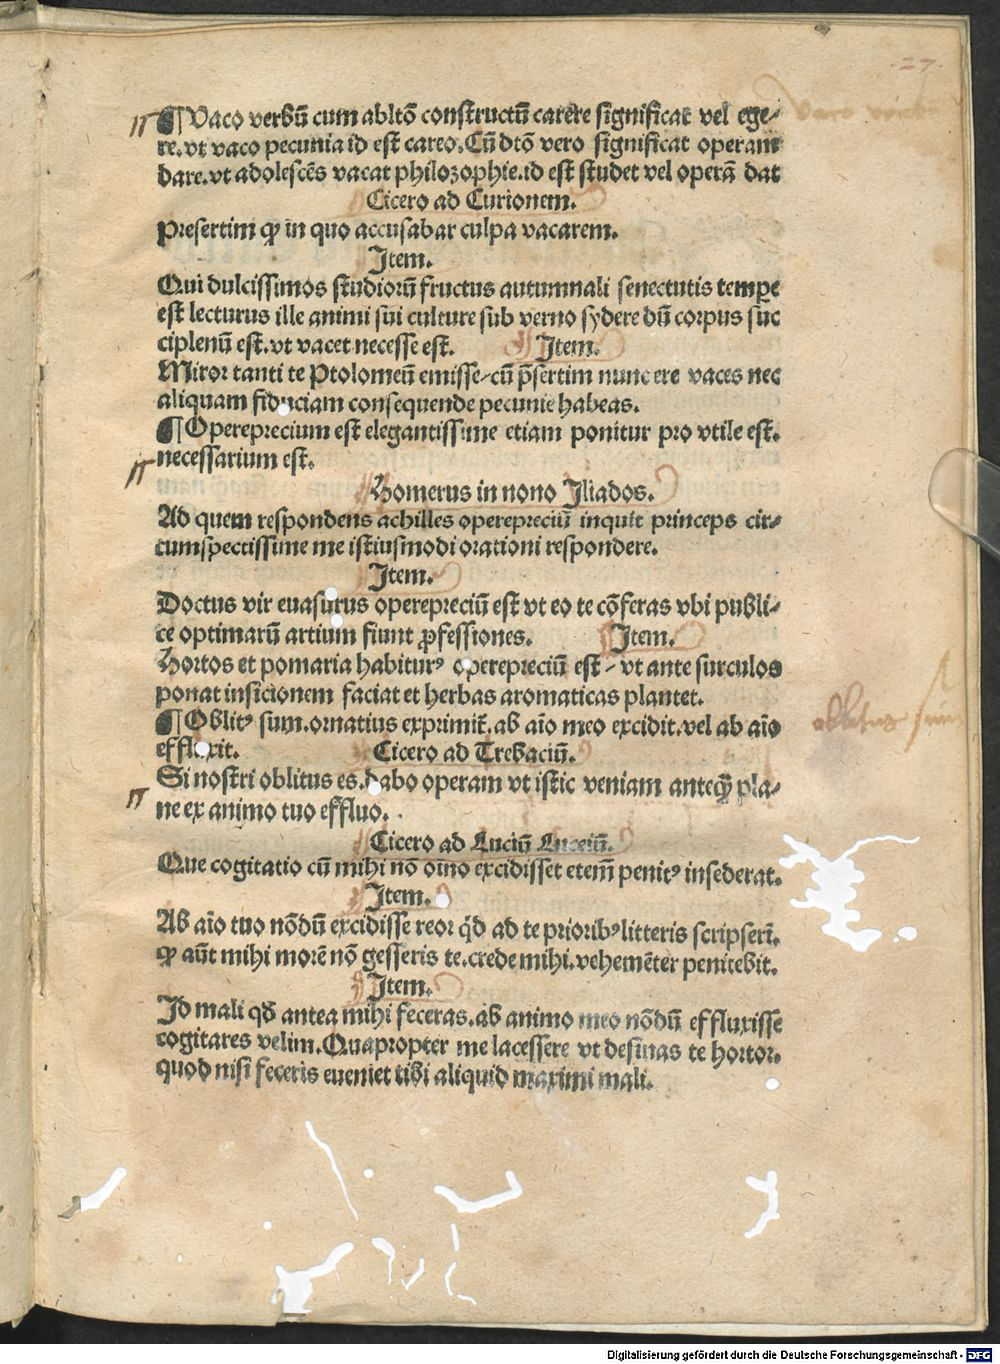 27.
¶Vaco verbū cum abltō constructū carere significat vel ege⸗
re.vt vaco pecunia id est careo.Cū dtō vero significat operam
dare.vt adolescēs vacat philozophie.id est studet vel operā dat
Cicero ad Curionem.
Presertim ꝙ in quo accusabar culpa vacarem.
Item.
Qui dulcissimos studiorū fructus autumnali senectutis tempe
est lecturus ille animi sui culture sub verno sydere dū corpus suc
ciplenū est.vt vacet necesse est. Item.
Miror tanti te Ptolomeū emisse⸗cū p̄sertim nunc ere vaces nec
aliquam fiduciam consequende pecunie habeas.
¶Opereprecium est elegantissime etiam ponitur pro vtile est.
necessarium est.
Homerus in nono Iliados.
Ad quem respondens achilles operepreciū inquit princeps cir⸗
cumspectissime me istiusmodi orationi respondere.
Item.
Doctus vir euasurus operepreciū est vt eo te cōferas vbi publi⸗
ce optimarū artium fiunt ꝓfessiones. Item.
Hortos et pomaria habiturꝰ operepreciū est⸗vt ante surculos
ponat insicionem faciat et herbas aromaticas plantet.
¶Oblitꝰ sum.ornatius exprimit̄.ab aīo meo excidit.vel ab aīo
effluxit. Cicero ad Trebaciū.
Si nostri oblitus es.dabo operam vt istic veniam anteq̄ pla⸗
ne ex animo tuo effluo.
Cicero ad Luciū Luceiū.
Que cogitatio cū mihi nō oīno excidisset etem̄ penitꝰ insederat.
Item.
Ab aīo tuo nōdū excidisse reor qd̄ ad te prioribꝰ litteris scripserī.
ꝙ aūt mihi morē nō gesseris te.crede mihi.vehemēter penitebit.
Item.
Id mali qd̄ antea mihi feceras.ab animo meo nōdū effluxisse
cogitares velim.Quapropter me lacessere vt desinas te hortor.
quod nisi feceris eueniet tibi aliquid maximi mali.
oblitus sum
Digitalisierung gefördert durch die Deutsche Forschungsgemeinschaft - DFG